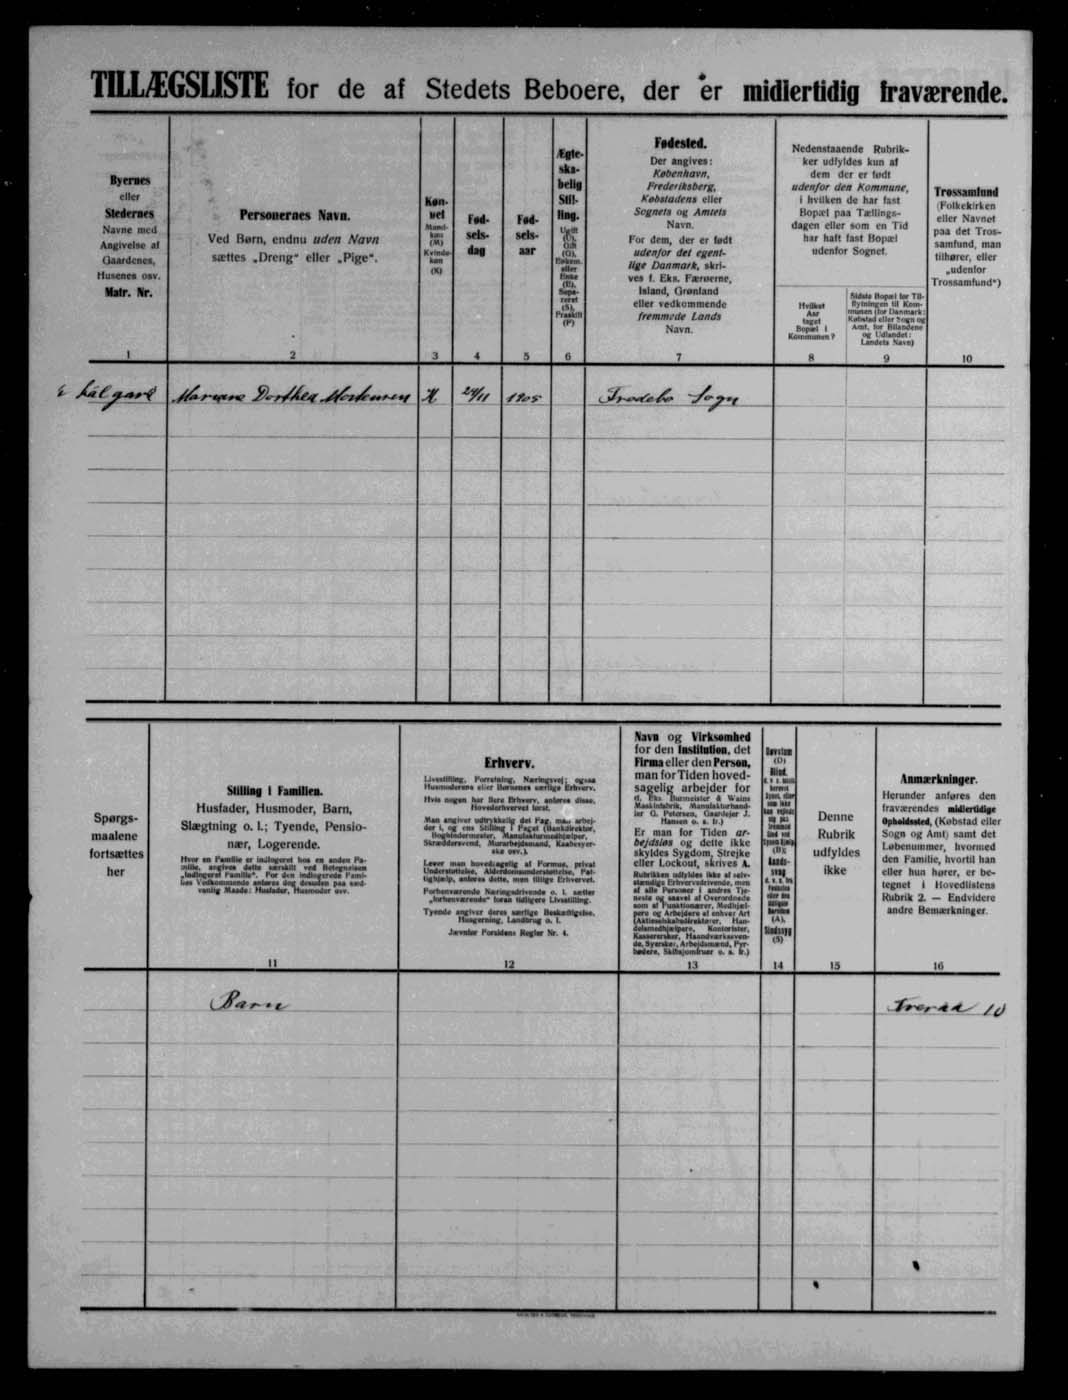 TILLÆGSLISTE for de af Stedets Beboere, der er midlertidig fraværende.
Byernes
eller
Stedernes
Navne med
Angivelse af
Gaardenes,
Husenes osv.
Matr. Nr.
Personernes Navn.
Ved Børn, endnu uden Navn
sættes „Dreng“ eller „Pige“.
Køn-
net
Mand-
køn
(M)
Kvinde-
køn
(K)
Fød-
sels-
dag
Fød-
sels-
aar
Ægte-
ska-
belig
Stil-
ling.
Ugift
(U),
Gift
(G),
Enkem.
eller
Enke
(E),
Sepa-
reret
(S),
Fraskilt
(F)
Fødested.
Der angives:
København,
Frederiksberg,
Købstadens eller
Sognets og Amtets
Navn.
For dem, der er født
udenfor det egent-
lige Danmark, skri-
ves f. Eks. Færøerne,
Island, Grønland
eller vedkommende
fremmede Lands
Navn.
Nedenstaaende Rubrik-
ker udfyldes kun af
dem der er født
udenfor den Kommune,
i hvilken de har fast
Bopæl paa Tællings-
dagen eller som en Tid
har haft fast Bopæl
udenfor Sognet.
Hvilket
Aar
taget
Bopæl i
Kommunen?
Sidste Bopæl for Til-
flytningen til Kom-
munen (for Danmark:
Købstad eller Sogn og
Amt, for Bilandene
og Udlandet:
Landets Navn)
Trossamfund
(Folkekirken
eller Navnet
paa det Tros-
samfund, man
tilhører, eller
„udenfor
Trossamfund“)
1 2 3 4 5 6 7 8 9 10
Dorthea K 24/11 1905 Sogn
Spørgs-
maalene
fortsættes
her
Stilling i Familien.
Husfader, Husmoder, Barn,
Slægtning o. l.; Tyende, Pensio-
nær, Logerende.
Hvor en Familie er indlogeret hos en anden Fa-
milie, angives dette særskilt ved Betegnelsen
„indlogeret Familie“. For den indlogerede Fami-
lies Vedkommende anføres dog desuden paa sæd-
vanlig Maade: Husfader, Husmoder osv.
Erhverv.
Livsstilling, Forretning, Næringsvej; ogsaa
Husmoderens eller Børnenes særlige Erhverv.
Hvis nogen har flere Erhverv, anføres disse,
Hovederhvervet først.
Man angiver udtrykkelig det Fag, man arbej-
der i, og ens Stilling i Faget (Bankdirektør,
Bogbindermester, Manufakturmedhjælper,
Skræddersvend, Murarbejdsmand, Kaabesyer-
ske osv.).
Lever man hovedsagelig af Formue, privat
Understøttelse, Alderdomsunderstøttelse, Fat-
tighjælp, anføres dette, men tillige Erhvervet.
Forhenværende Næringsdrivende o. l. sætter
„forhenværende“ foran tidligere Livsstilling.
Tyende angiver deres særlige Beskæftigelse,
Husgerning, Landbrug o. l.
Jævnfør Forsidens Regler Nr. 4.
Navn og Virksomhed
for den Institution, det
Firma eller den Person,
man for Tiden hoved-
sagelig arbejder for
(f. Eks. Burmeister & Wains
Maskinfabrik, Manufakturhand-
ler G. Petersen, Gaardejer J.
Hansen o. s. fr.)
Er man for Tiden ar-
bejdsløs og dette ikke
skyldes Sygdom, Strejke
eller Lockout, skrives A.
Rubrikken udfyldes ikke af selv-
stændige Erhvervsdrivende, men
af alle Personer i andres Tje-
neste og saavel af Overordnede
som af Funktionærer, Medhjæl-
pere og Arbejdere af enhver Art
(Aktieselskabsdirektører, Han-
delsmedhjælpere, Kontorister,
Kasserersker, Haandværkssven-
de, Syersker, Arbejdsmænd, Fyr-
bødere, Skibsjomfruer o. s. fr.)
Døvstum
(D)
Blind,
(B);
Aands-
svag
(A),
Sindssyg
(S)
Denne
Rubrik
udfyldes
ikke
Anmærkninger.
Herunder anføres den
fraværendes midlertidige
Opholdssted, (Købstad eller
Sogn og Amt) samt det
Løbenummer, hvormed
den Familie, hvortil han
eller hun hører, er be-
tegnet i Hovedlistens
Rubrik 2. — Endvidere
andre Bemærkninger.
11 12 13 14 15 16
Barn 10